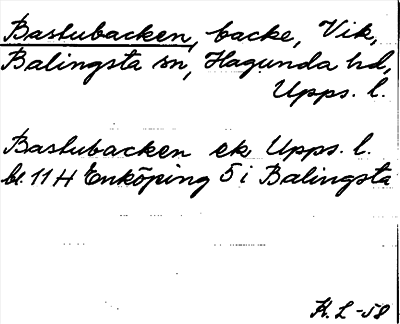 Bastubacken, backe, Vik,
Balingsta sn, Hagunda hd,
Upps. l.
Bastubacken ek Upps. l.
bl. 11 H Enköping 5 i Balingsta
K. L -58